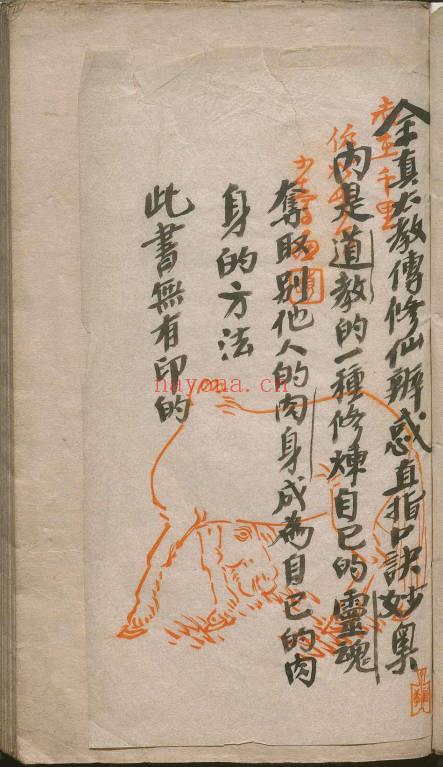 全真大教傳修仙辨惑直指口訣妙奥
内是道教的一種修煉自己的靈魂
奪取別他人的肉身成為自己的肉
身的方法
此書無有印的
nayona.cn